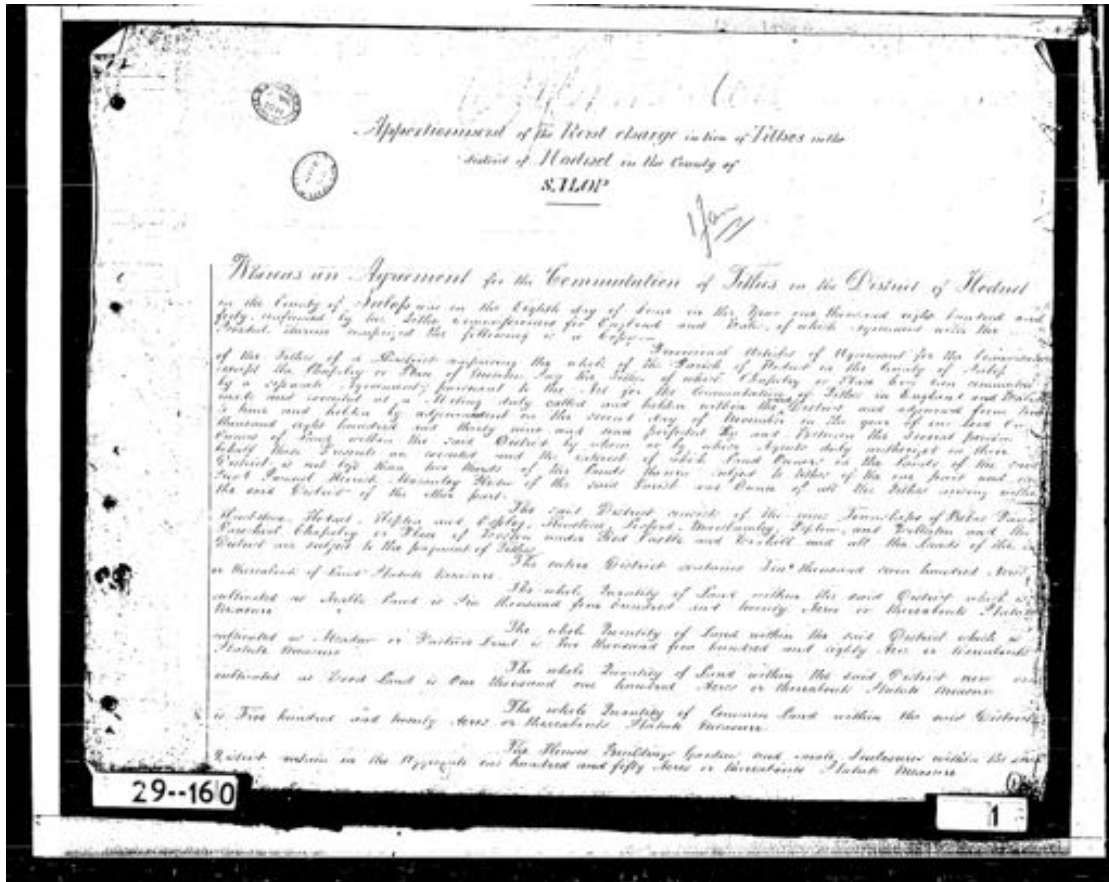 Apportionment of the Rent charge in lieu of Tithes in the
District of Hodnet in the County of
SALOP
1 Jan
Whereas an Agreement for the Commutation of Tithes in the District of Hodnet
in the County of Salop was on the Eighth day of June in the Year one thousand eight hundred and
forty, confirmed by the Tithe Commissioners for England and Wales, of which Agreement with the
comprised the following is a Copy
Provisional Articles of Agreement for the Commutation
of the Tithes of a District comprising the whole of the Parish of Hodnet in the County of Salop
except the Chapelry or Place of the Tithes of which Chapelry or Place have been commuted
by a separate Agreement, pursuant to the Act for the Commutation of Tithes in England and Wales
made and executed at a Meeting duly called and holden within the District and adjourned from time
to time and holden by adjournment on the second day of November in the year of our Lord One
thousand eight hundred and thirty nine and By and Between the several persons
Owners of Land within the said District by whom or by whose Agents duly authorized in their
behalf these Presents are executed and the interest of which Land Owners in the Lands of the said
District is not less than two thirds of the Lands therein subject to tithes of the one part and
of the said Parish and Owner of all the Tithes arising within
the said District of the other part.
The said District consists of the Townships of
Hodnet, Hopton and Espley, and Wollerton and the
Parochial Chapelry or Place of Weston under Red Castle and and all the Lands of the
District are subject to the payment of Tithes
The entire District contains Ten thousand seven hundred Acres
or thereabouts of Land Statute Measure
The whole Quantity of Land within the said District which is
cultivated as Arable Land is thousand four hundred and twenty Acres or thereabouts Statute
Measure
The whole Quantity of Land within the said District which is
cultivated as Meadow or Pasture Land is thousand hundred and eighty Acres or thereabouts
Statute Measure
The whole Quantity of Land within the said District now
cultivated as Wood Land is One thousand one hundred Acres or thereabouts Statute Measure
The whole Quantity of Common Land within the said District
is Five hundred and twenty Acres or thereabouts Statute Measure
The Houses Buildings Gardens and small Inclosures within the said
District contain in the Aggregate one hundred and fifty Acres or thereabouts Statute Measure
29--160
1